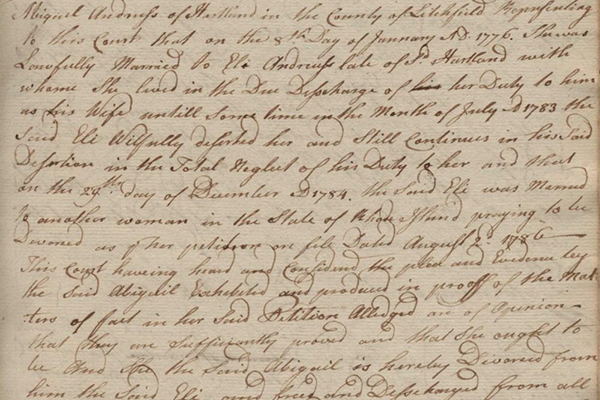 Abigail Andruss of Hartland in the County of Litchfield Representing
to this Court that on the 8th Day of January AD. 1776. She was
Lawfully Married to Eli Andruss late of Sd Hartland with
whome She lived in the Due Discharge of her Duty to him
as his Wife untill Some time in the Month of July AD 1783 the
Said Eli Wilfully deserted her and Still Continues in his Said
Desertion in the Total Neglect of his Duty to her and that
on the 29th day of December AD 1784. the Said Eli was Married
to another woman in the State of Rhode Island praying to be
Divorced as per her petition on file Dated August 2d 1786
This Court haveing heard and Considered the plea and Evidence by
the Said Abigail Exhibited and produced in prooff of the Mat
ters of fact in her Said Petition Alledged are of Opinion
that they are Sufficiently proved and that She ought to
be And She the Said Abigail is hereby Divorced from
him the Said Eli and free and Disscharged from all